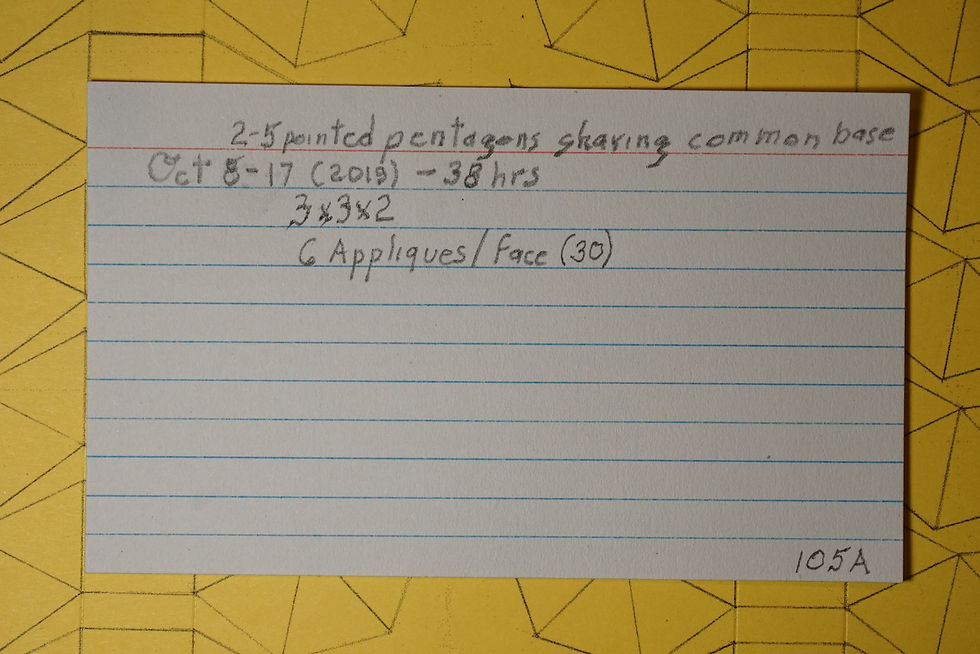 2-5 pointed pentagons sharing common base
Oct 8-17 (2019) - 38 hrs
3x3x2
6 Appliques/Face (30)
105A